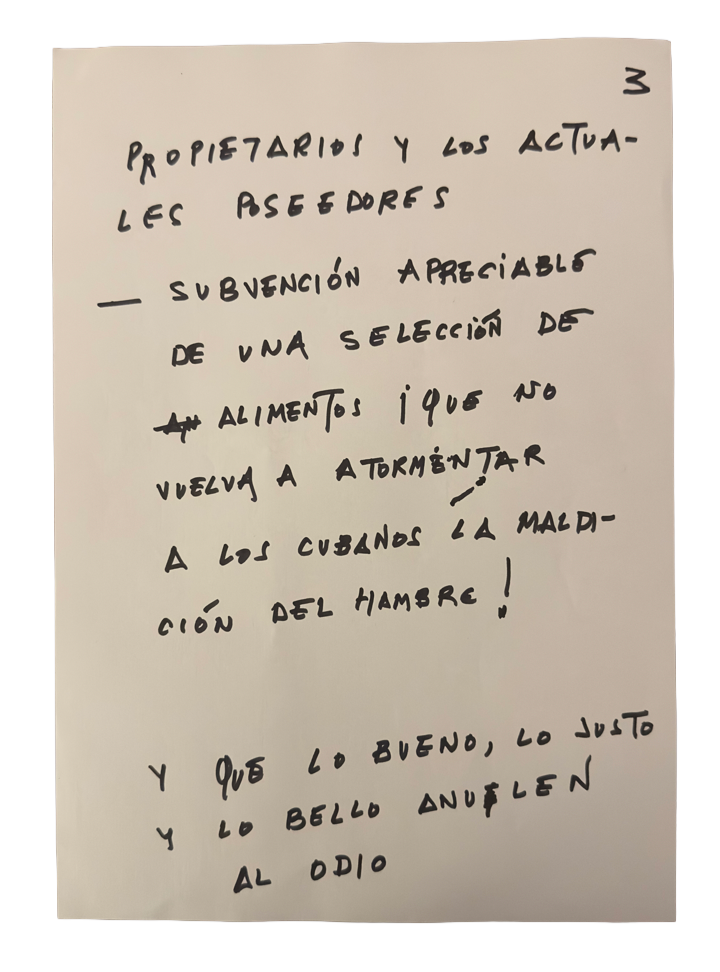 3
PROPIETARIOS Y LOS ACTUA-
LES POSEEDORES
— SUBVENCIÓN APRECIABLE
DE UNA SELECCIÓN DE
ALIMENTOS ¡QUE NO
VUELVA A ATORMENTAR
A LOS CUBANOS LA MALDI-
CIÓN DEL HAMBRE!
Y QUE LO BUENO, LO JUSTO
Y LO BELLO ANULEN
AL ODIO